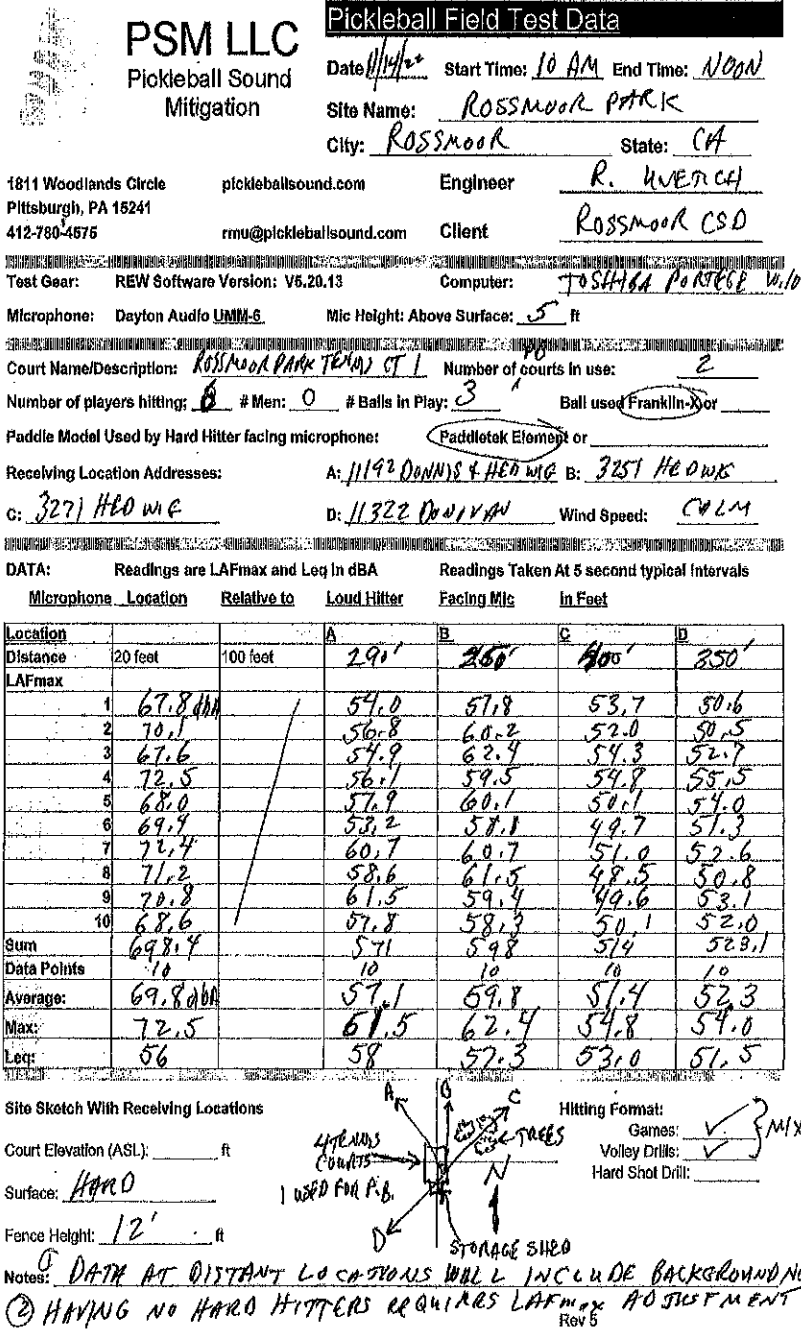 Pickleball Field Test Data
PSM LLC
Pickleball Sound
Mitigation
Date 11/14/22 Start Time: 10 AM End Time: NOON
Site Name: ROSSMOOR PARK
City: ROSSMOOR State: CA
1811 Woodlands Circle pickleballsound.com Engineer R.
Pittsburgh, PA 15241
412-780-4575 rmu@pickleballsound.com Client ROSSMOOR CSD
Test Gear: REW Software Version: V5.20.13 Computer: TOSHIBA PORTEGE W.10
Microphone: Dayton Audio UMM-6 Mic Height: Above Surface: 5 ft
Court Name/Description: ROSSMOOR PARK TENNIS CT 1 Number of PB courts in use: 2
Number of players hitting: # Men: 0 # Balls in Play: 3 Ball used Franklin-X or
Paddle Model Used by Hard Hitter facing microphone: Paddletek Element or
Receiving Location Addresses: A: 11192 DONNIS & HEDWIG B: 3251 HEDWIG
C: 3271 HEDWIG D: 11322 DONIVAN Wind Speed: CALM
DATA: Readings are LAFmax and Leq in dBA Readings Taken At 5 second typical Intervals
Microphone Location Relative to Loud Hitter Facing Mic in Feet
Location A B C D
Distance 20 feet 100 feet 290' 350'
LAFmax
1 67.8 dbA 54.0 57.8 53.7 50.6
2 70.1 56.8 60.2 52.0 50.5
3 67.6 54.9 62.4 54.3 52.7
4 72.5 56.1 59.5 54.8 55.5
5 68.0 57.9 60.1 50.1 54.0
6 69.4 53.2 58.1 49.7 51.3
7 72.4 60.7 60.7 51.0 52.6
8 71.2 58.6 61.5 48.5 50.8
9 70.8 61.5 59.4 49.6 53.1
10 68.6 57.8 58.3 50.1 52.0
Sum 698.4 571 598 514 523.1
Data Points 10 10 10 10 10
Average: 69.8 dbA 57.1 59.8 51.4 52.3
Max: 72.5 61.5 62.4 54.8 54.0
Leq: 56 58 57.3 53.0 51.5
Site Sketch With Receiving Locations
A B C
TREES
4 TENNIS
COURTS
1 USED FOR P.B.
N
D
STORAGE SHED
Hitting Format:
Games: ✓
Volley Drills: ✓
MIX
Hard Shot Drill:
Court Elevation (ASL): ft
Surface: HARD
Fence Height: 12' ft
Notes: ① DATA AT DISTANT LOCATIONS WILL INCLUDE BACKGROUND NO
② HAVING NO HARD HITTERS REQUIRES LAFmax ADJUSTMENT
Rev 5